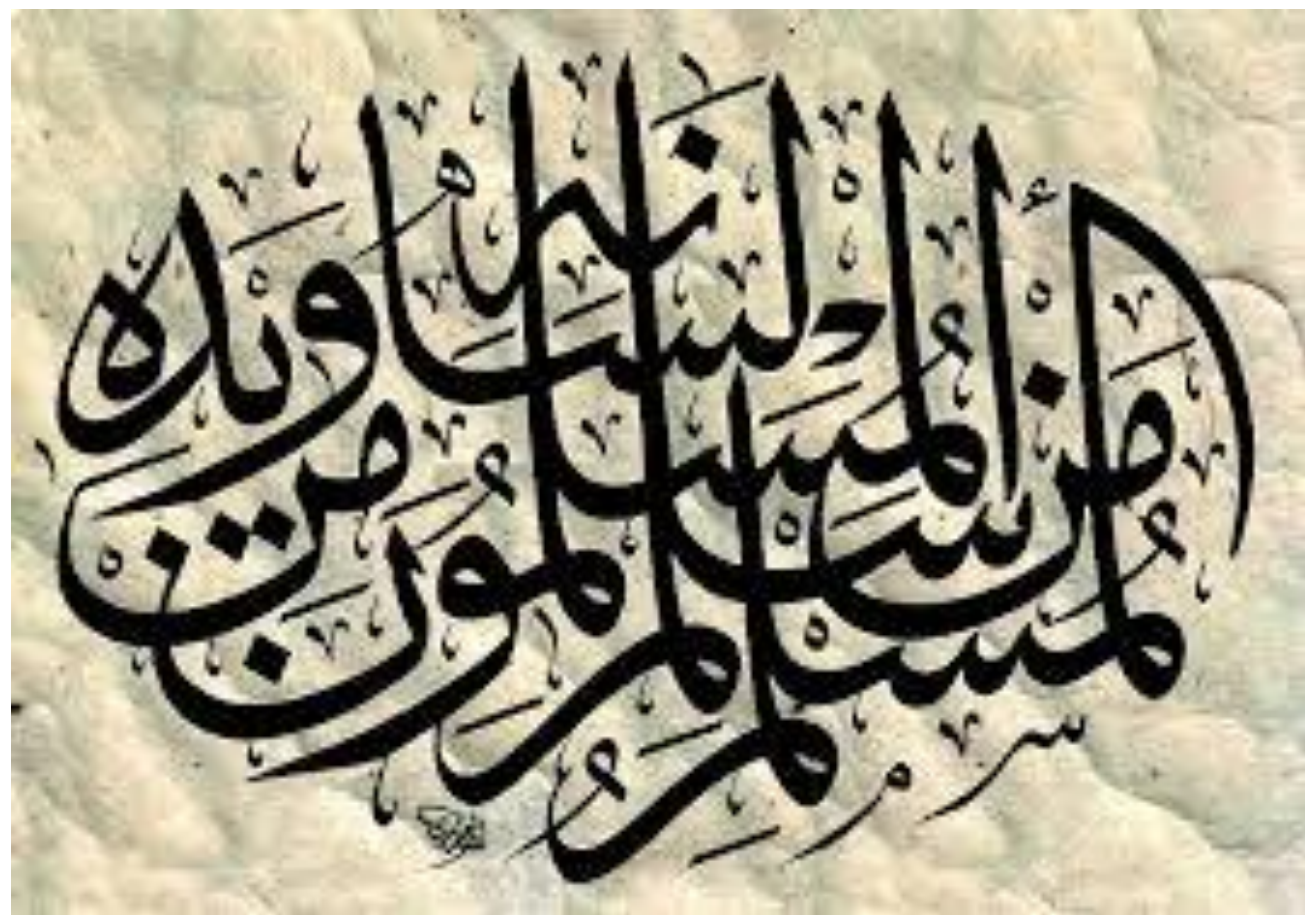 المُسْلِمُ مَنْ سَلِمَ المُسْلِمُونَ مِنْ لِسَانِهِ وَيَدِهِ